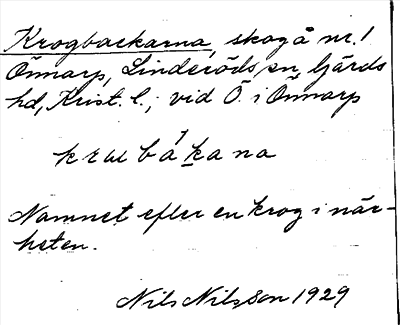 Krogbackarna, skog å nr. 1
Önnarp, Linderöds sn, Gärds
hd, Krist. l.; vid Ö. i Önnarp
krωbákana
Namnet efter en krog i när-
heten.
Nils Nilsson 1929